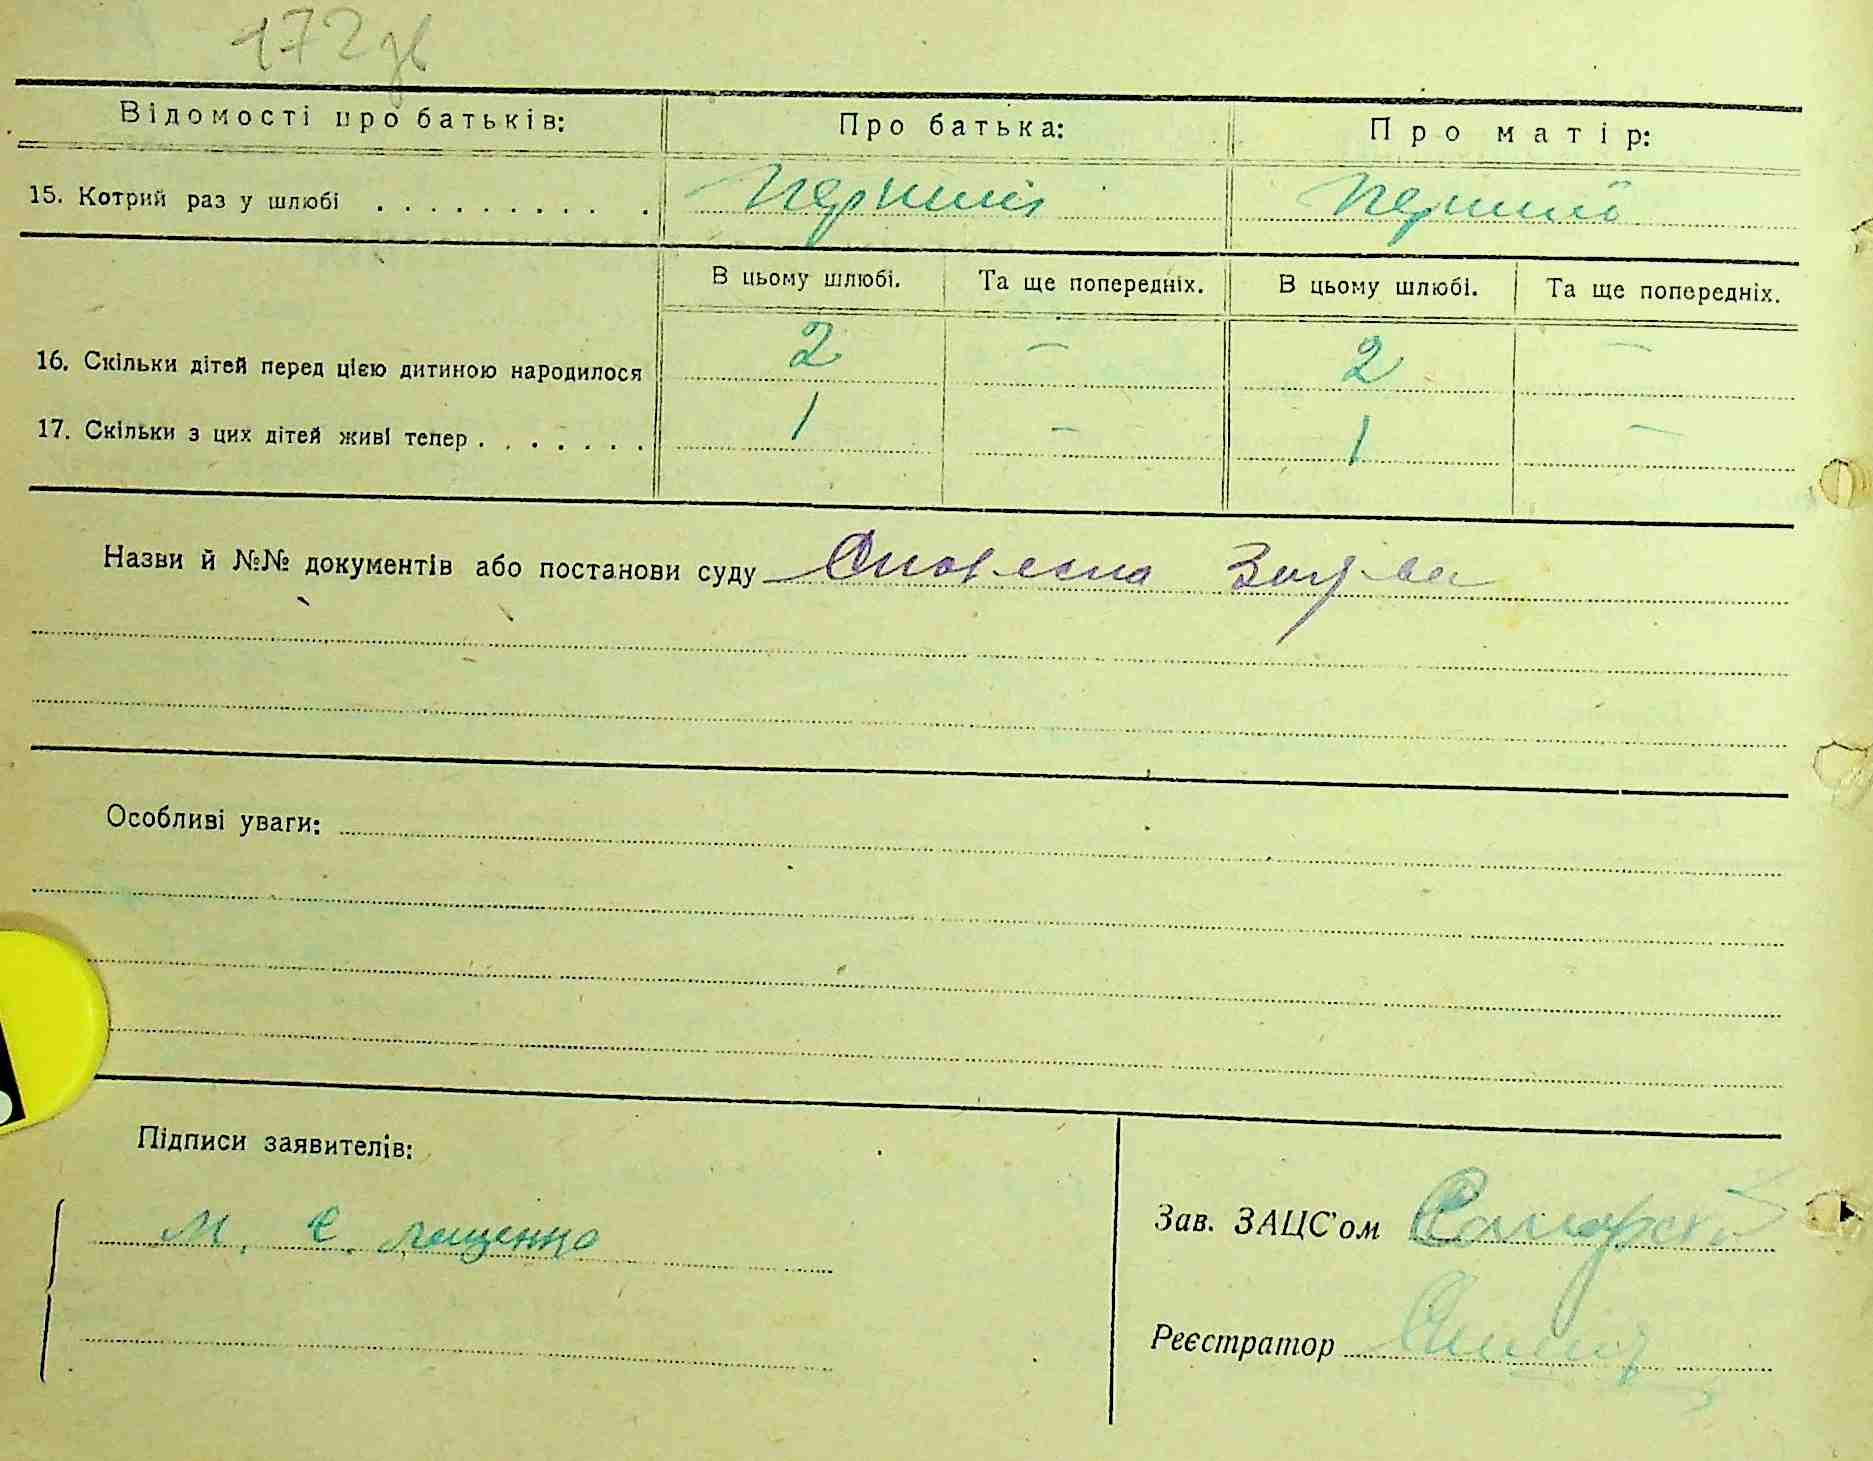 172 зв
Відомості про батьків: Про батька: Про матір:
15. Котрий раз у шлюбі . . . . . . . . . . перший перший
В цьому шлюбі. Та ще попередніх. В цьому шлюбі. Та ще попередніх.
16. Скільки дітей перед цією дитиною народилося 2 — 2 —
17. Скільки з цих дітей живі тепер . . . . . . . 1 — 1 —
Назви й №№ документів або постанови суду Словесна Заява
Особливі уваги:
Підписи заявителів:
М. Є. Лащенко
Зав. ЗАЦС'ом
Реєстратор